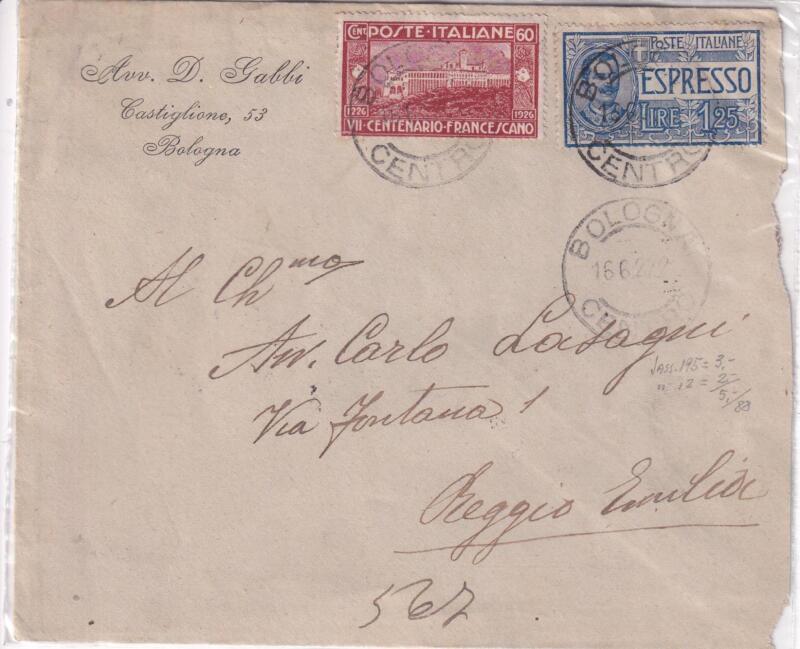 Avv. D. Gabbi
Castiglione, 53
Bologna
CENT POSTE·ITALIANE 60
1226 1926
VII·CENTENARIO·FRANCESCANO
BOLOGNA
CENTRO
POSTE ITALIANE
ESPRESSO
LIRE 1,25
BOL
CENTRO
BOLOGNA
16.6.27
CENTRO
Al Chmo
Avv. Carlo Lasagni
Via Fontana 1
Reggio Emilia
567
Sass. 195 = 3,-
12 = 2,-
5,-/88